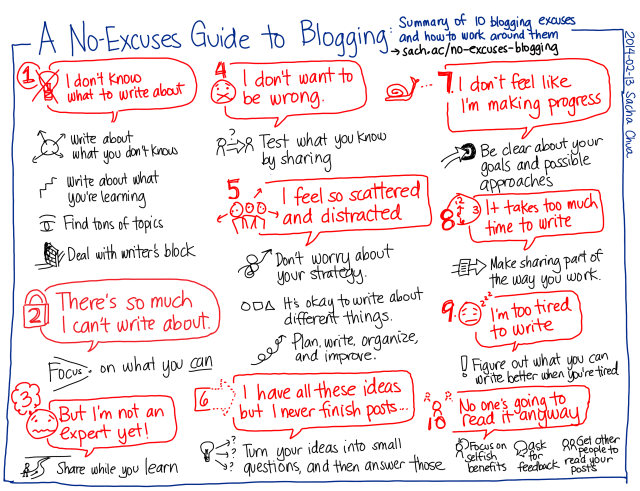 A No-Excuses Guide to Blogging:
Summary of 10 blogging excuses
and how to work around them
→ sach.ac/no-excuses-blogging
2014-02-13 Sacha Chua
1
I don't know
what to write about
Write about
what you don't know
Write about what
you're learning
Find tons of topics
Deal with writer's block
2
There's so much
I can't write about.
Focus on what you can
3
But I'm not an
expert yet!
Share while you learn
4
I don't want to
be wrong.
?
Test what you know
by sharing
5
I feel so scattered
and distracted
Don't worry about
your strategy.
It's okay to write about
different things.
Plan, write, organize,
and improve.
6
I have all these ideas
but I never finish posts...
?
?
?
Turn your ideas into small
questions, and then answer those
7.
I don't feel like
I'm making progress
Be clear about your
goals and possible
approaches
8
It takes too much
time to write
Make sharing part of
the way you work.
9.
zzz
I'm too tired
to write
! Figure out what you can
write better when you're tired
10
No one's going to
read it anyway
Focus on
selfish
benefits
ask
for
feedback
Get other
people to
read your
posts